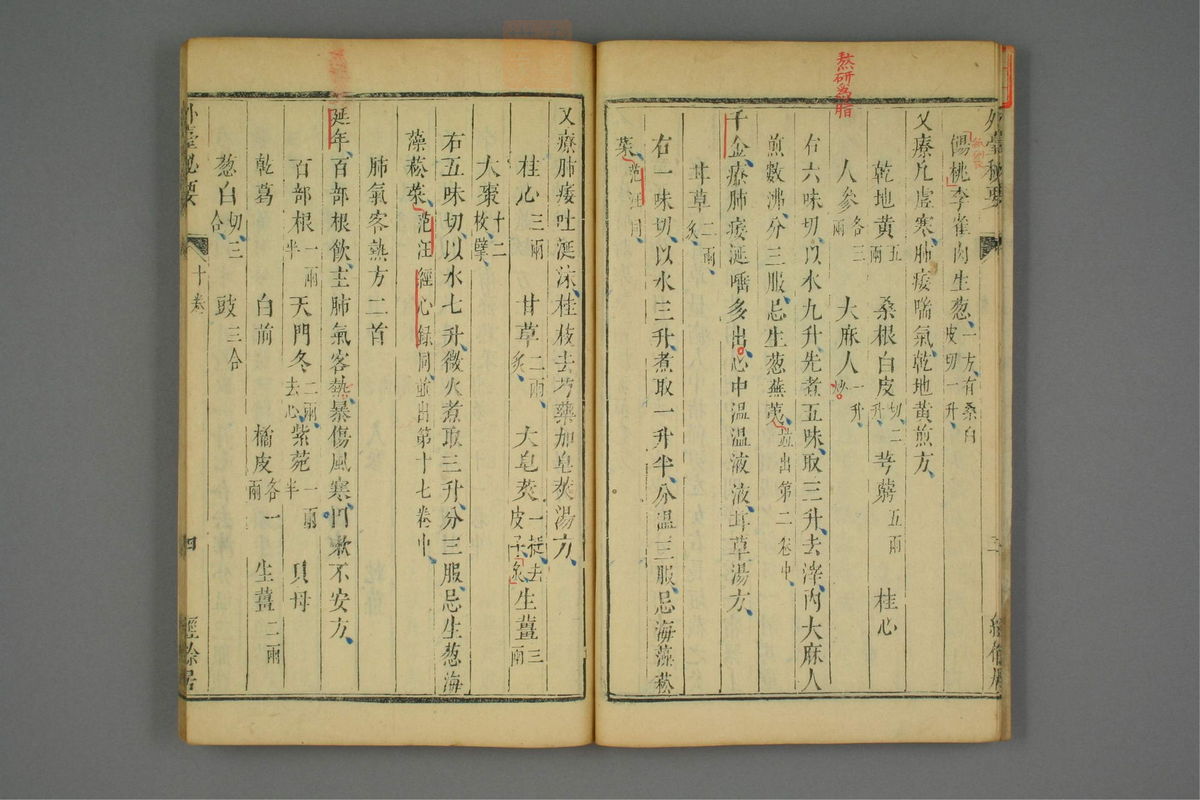 熬研為脂
外臺秘要
餳桃李雀肉生葱一方有桑白皮切一升
又療尸虛寒肺痿喘氣乾地黃煎方
乾地黃五兩 桑根白皮切二升 芎藭五兩 桂心
人參各三兩 大麻人一升熬
右六味切以水九升先煮五味取三升去滓內大麻人
煎數沸分三服忌生葱蕪荑並出第二卷中
千金療肺痿涎唾多出心中溫溫液液甘草湯方
甘草二兩炙
右一味切以水三升煮取一升半分溫三服忌海藻菘
菜范汪同
又療肺痿吐涎沫桂枝去芍藥加皂莢湯方
桂心三兩 甘草二兩炙 大皂莢一挺去皮子炙 生薑三兩
大棗十二枚擘
右五味切以水七升微火煮取三升分三服忌生葱海
藻菘菜范汪經心錄同並出第十七卷中
肺氣客熱方二首
延年百部根飲主肺氣客熱暴傷風寒嗽不安方
百部根一兩半 天門冬二兩去心 紫菀一兩半 貝母
乾葛 白前 橘皮各一兩 生薑二兩
葱白切三合 豉三合
外臺秘要 十卷 四 經餘居